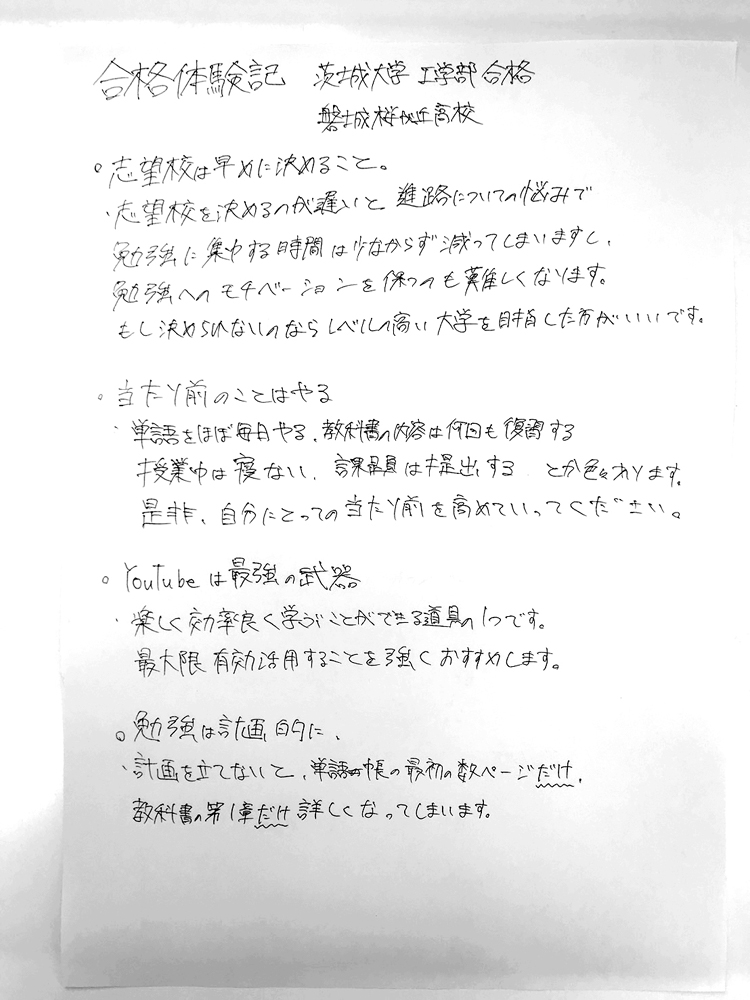 合格体験記 茨城大学 工学部 合格
磐城桜が丘高校
○志望校は早めに決めること。
・志望校を決めるのが遅いと進路についての悩みで
勉強に集中する時間は少なからず減ってしまいますし、
勉強へのモチベーションを保つのも難しくなります。
もし決められないのならレベルの高い大学を目指した方がいいです。
○当たり前のことはやる
・単語をほぼ毎日やる、教科書の内容は何回も復習する
授業中は寝ない、課題は提出する とか色々あります。
是非、自分にとっての当たり前を高めていってください。
○YouTubeは最強の武器
・楽しく効率良く学ぶことができる道具の1つです。
最大限有効活用することを強くおすすめします。
○勉強は計画的に、
・計画を立てないと、単語帳の最初の数ページだけ、
教科書の第1章だけ詳しくなってしまいます。